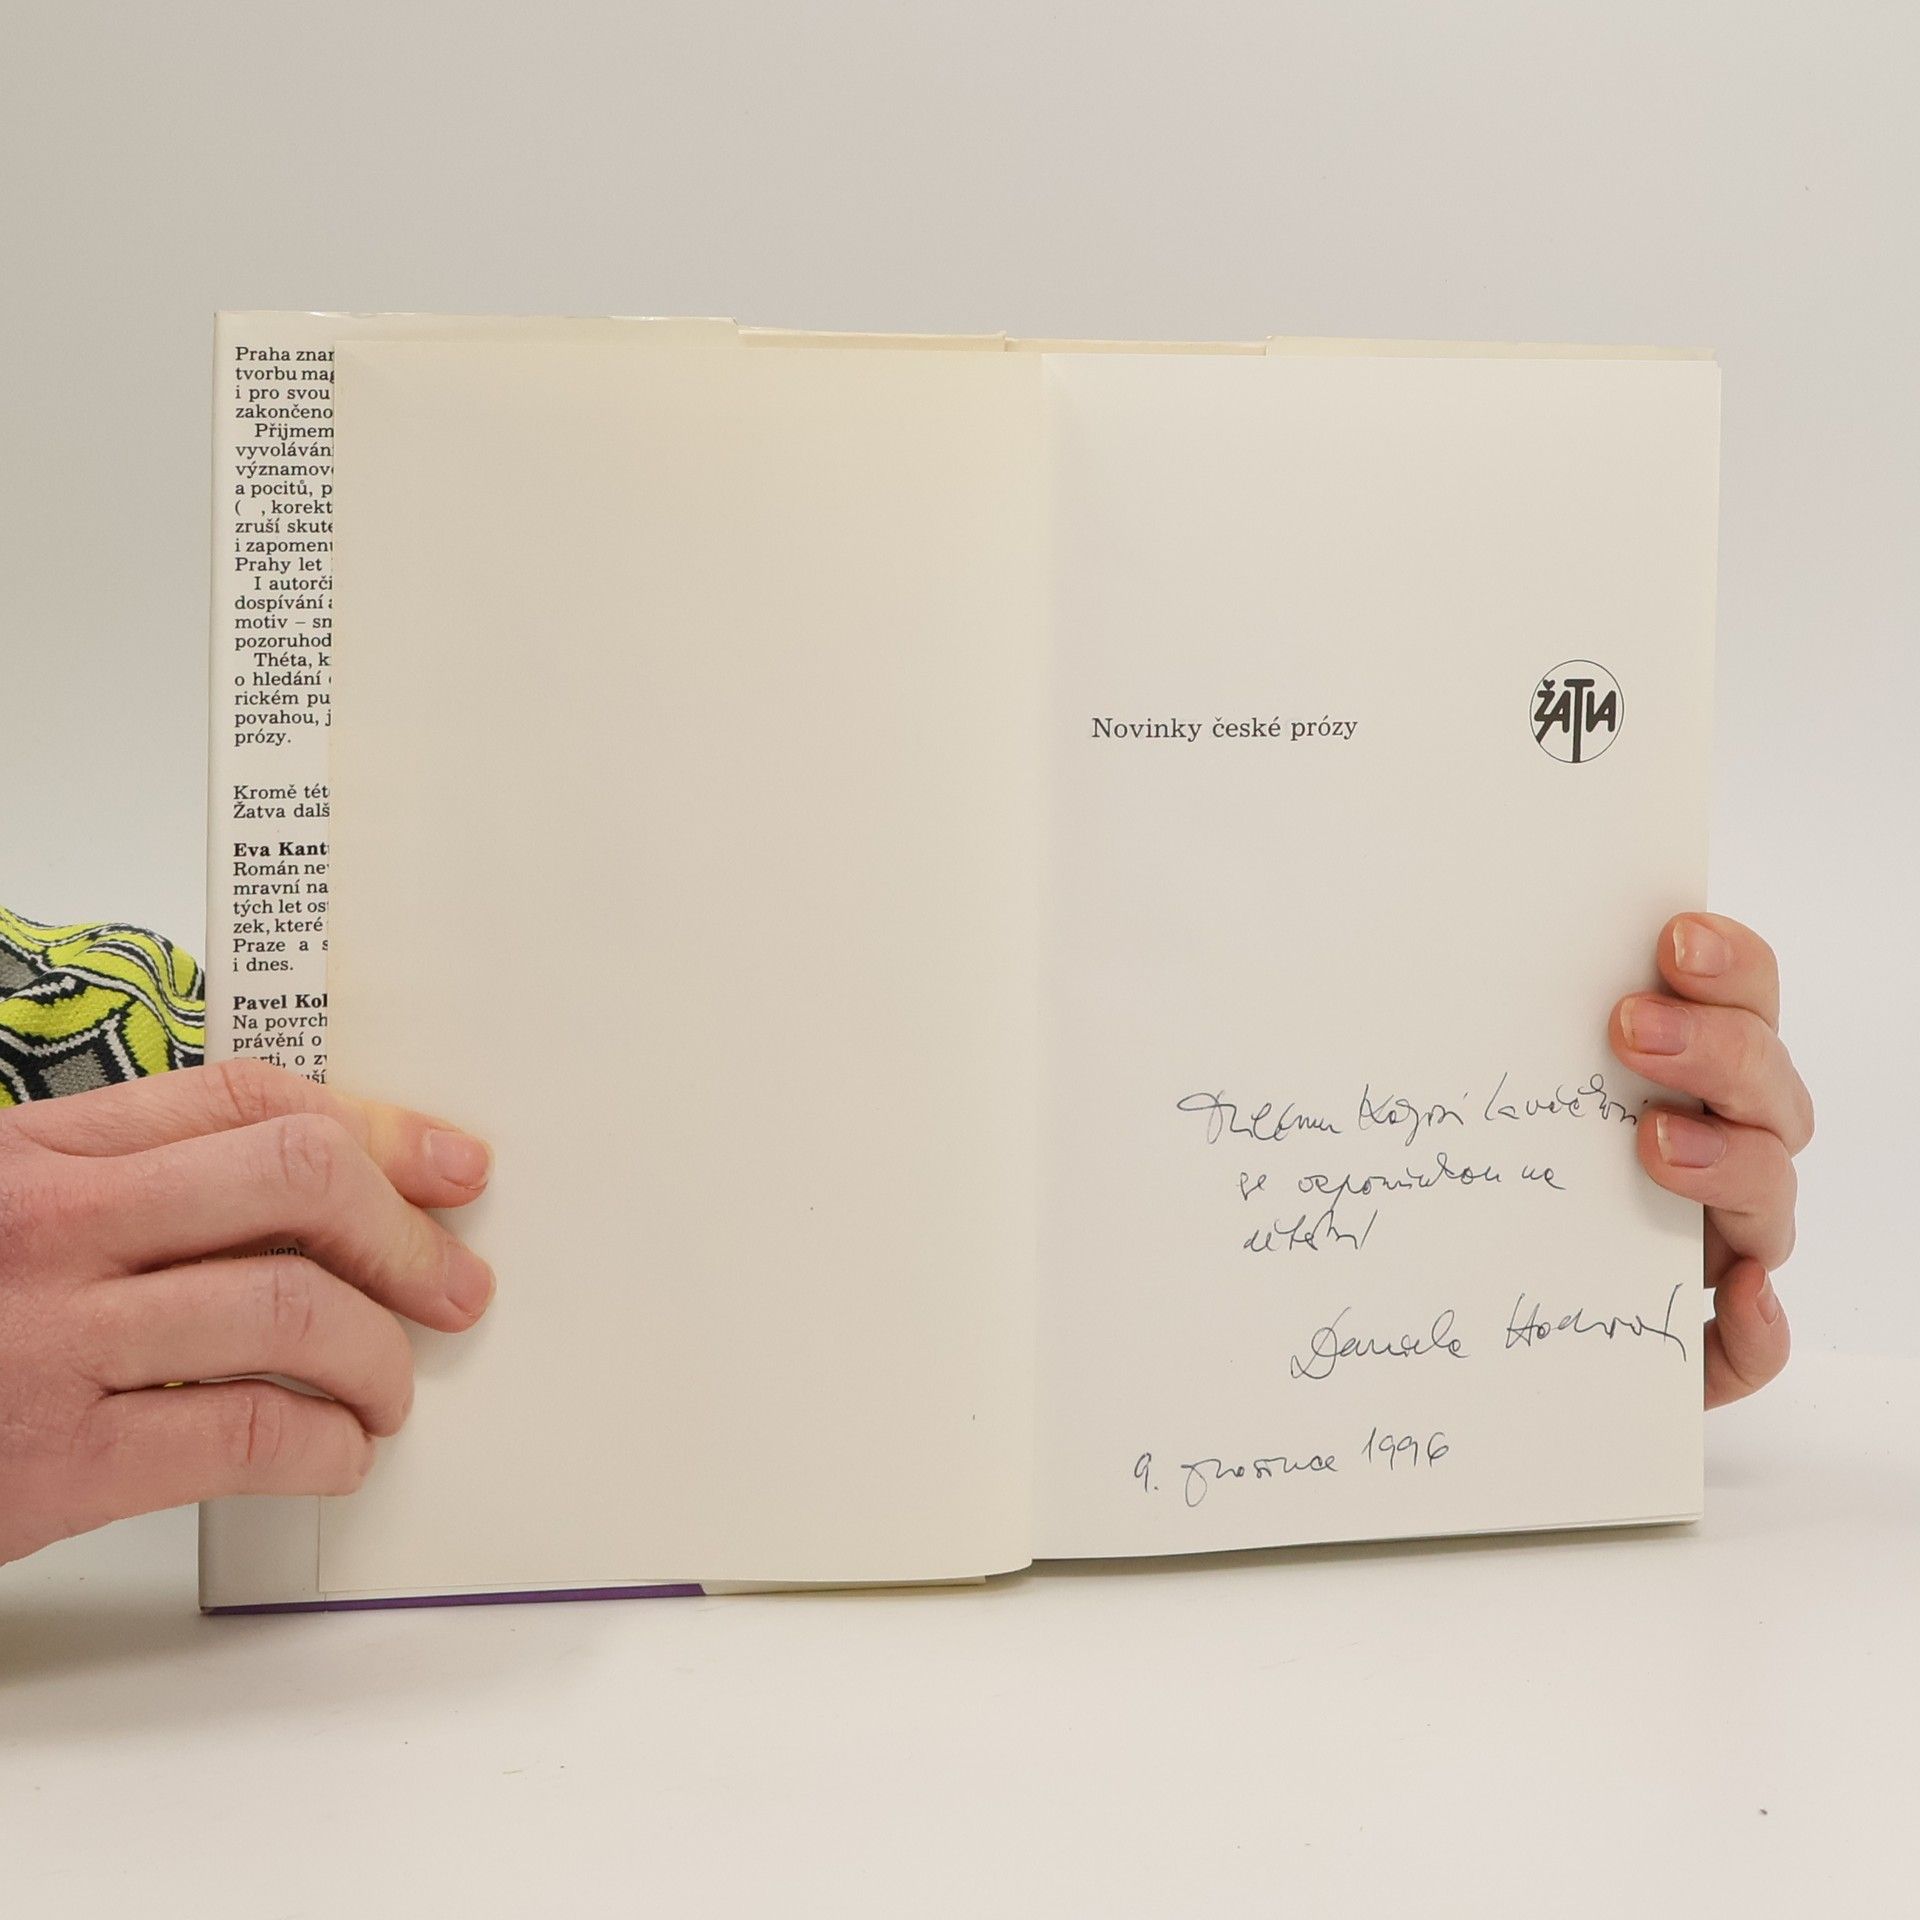 Praha znam
tvorbu mag
i pro svou
zakončeno
Přijmem
vyvoláván
významov
a pocitů, p
( , korekt
zruší skute
i zapomenu
Prahy let
I autorči
dospívání a
motiv – sm
pozoruhod
Théta, k
o hledání
rickém pu
povahou, j
prózy.
Kromě tét
Žatva dalš
Eva Kant
Román ne
mravní na
tých let os
zek, které
Praze a s
i dnes.
Pavel Koh
Na povrch
právění o
o z
Novinky české prózy
ŽATVA
Milému
se vzpomínkou na
dětství
Daniela Hodrová
9. prosince 1996